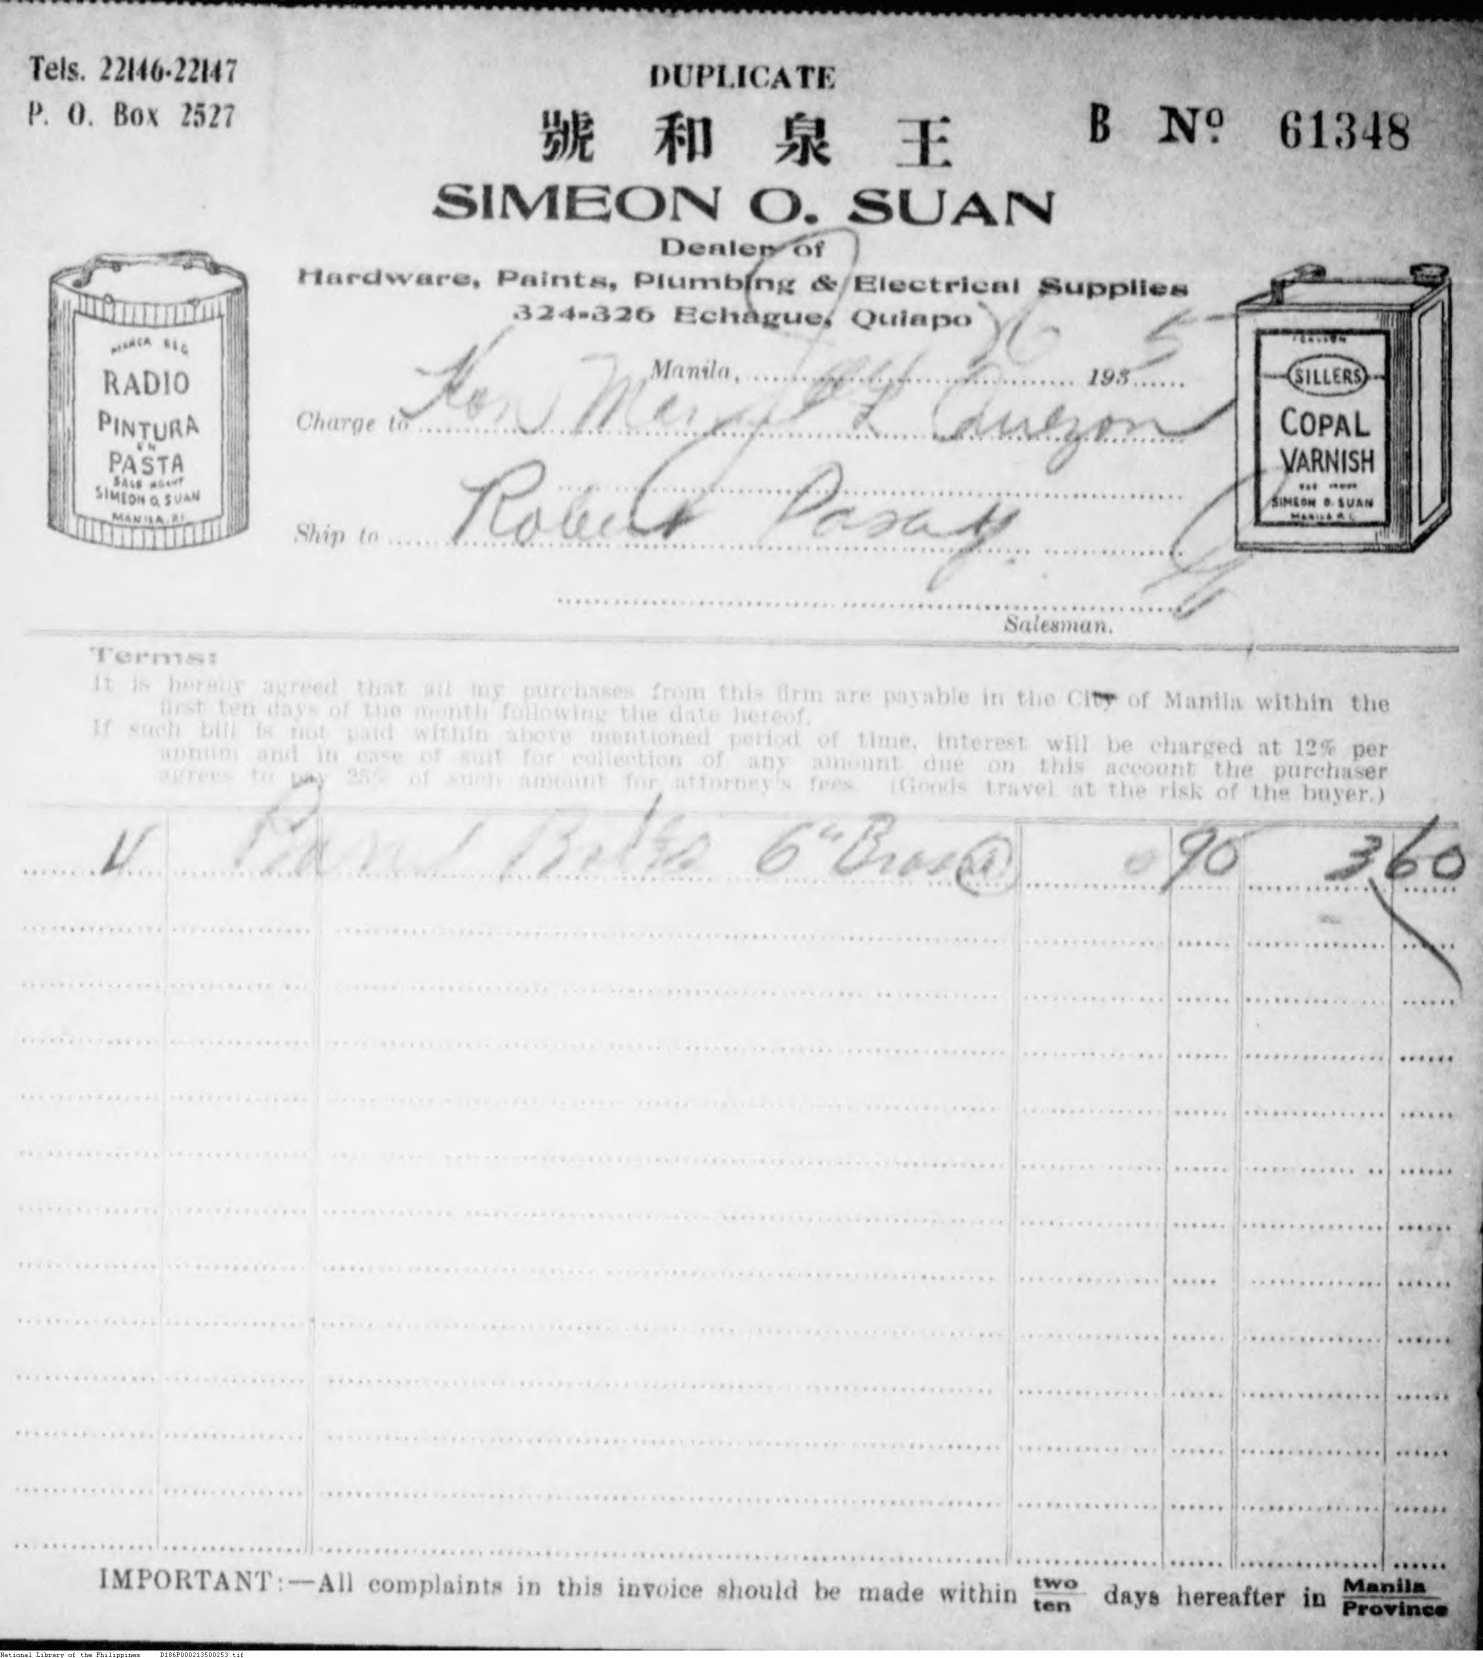 Tels. 22146-22147
P. O. Box 2527
DUPLICATE
號和泉王
B No. 61348
SIMEON O. SUAN
Dealer of
Hardware, Paints, Plumbing & Electrical Supplies
324-326 Echague, Quiapo
MARCA REG
RADIO
PINTURA
EN
PASTA
SALE AGENT
SIMEON O. SUAN
MANILA, P.I.
SILLERS
COPAL
VARNISH
SIMEON O. SUAN
MANILA P.I.
Manila, 26 1935
Charge to Hon Manuel L Quezon
Ship to Robert Pasay
Salesman.
Terms:
It is hereby agreed that all my purchases from this firm are payable in the City of Manila within the
first ten days of the month following the date hereof.
If such bill is not paid within above mentioned period of time, interest will be charged at 12% per
annum and in case of suit for collection of any amount due on this account the purchaser
agrees to pay 25% of such amount for attorney's fees. (Goods travel at the risk of the buyer.)
4 Bolts 6" Brass @ 0 90 3 60
IMPORTANT:—All complaints in this invoice should be made within two/ten days hereafter in Manila/Province
National Library of the Philippines D186P000213500253.tif